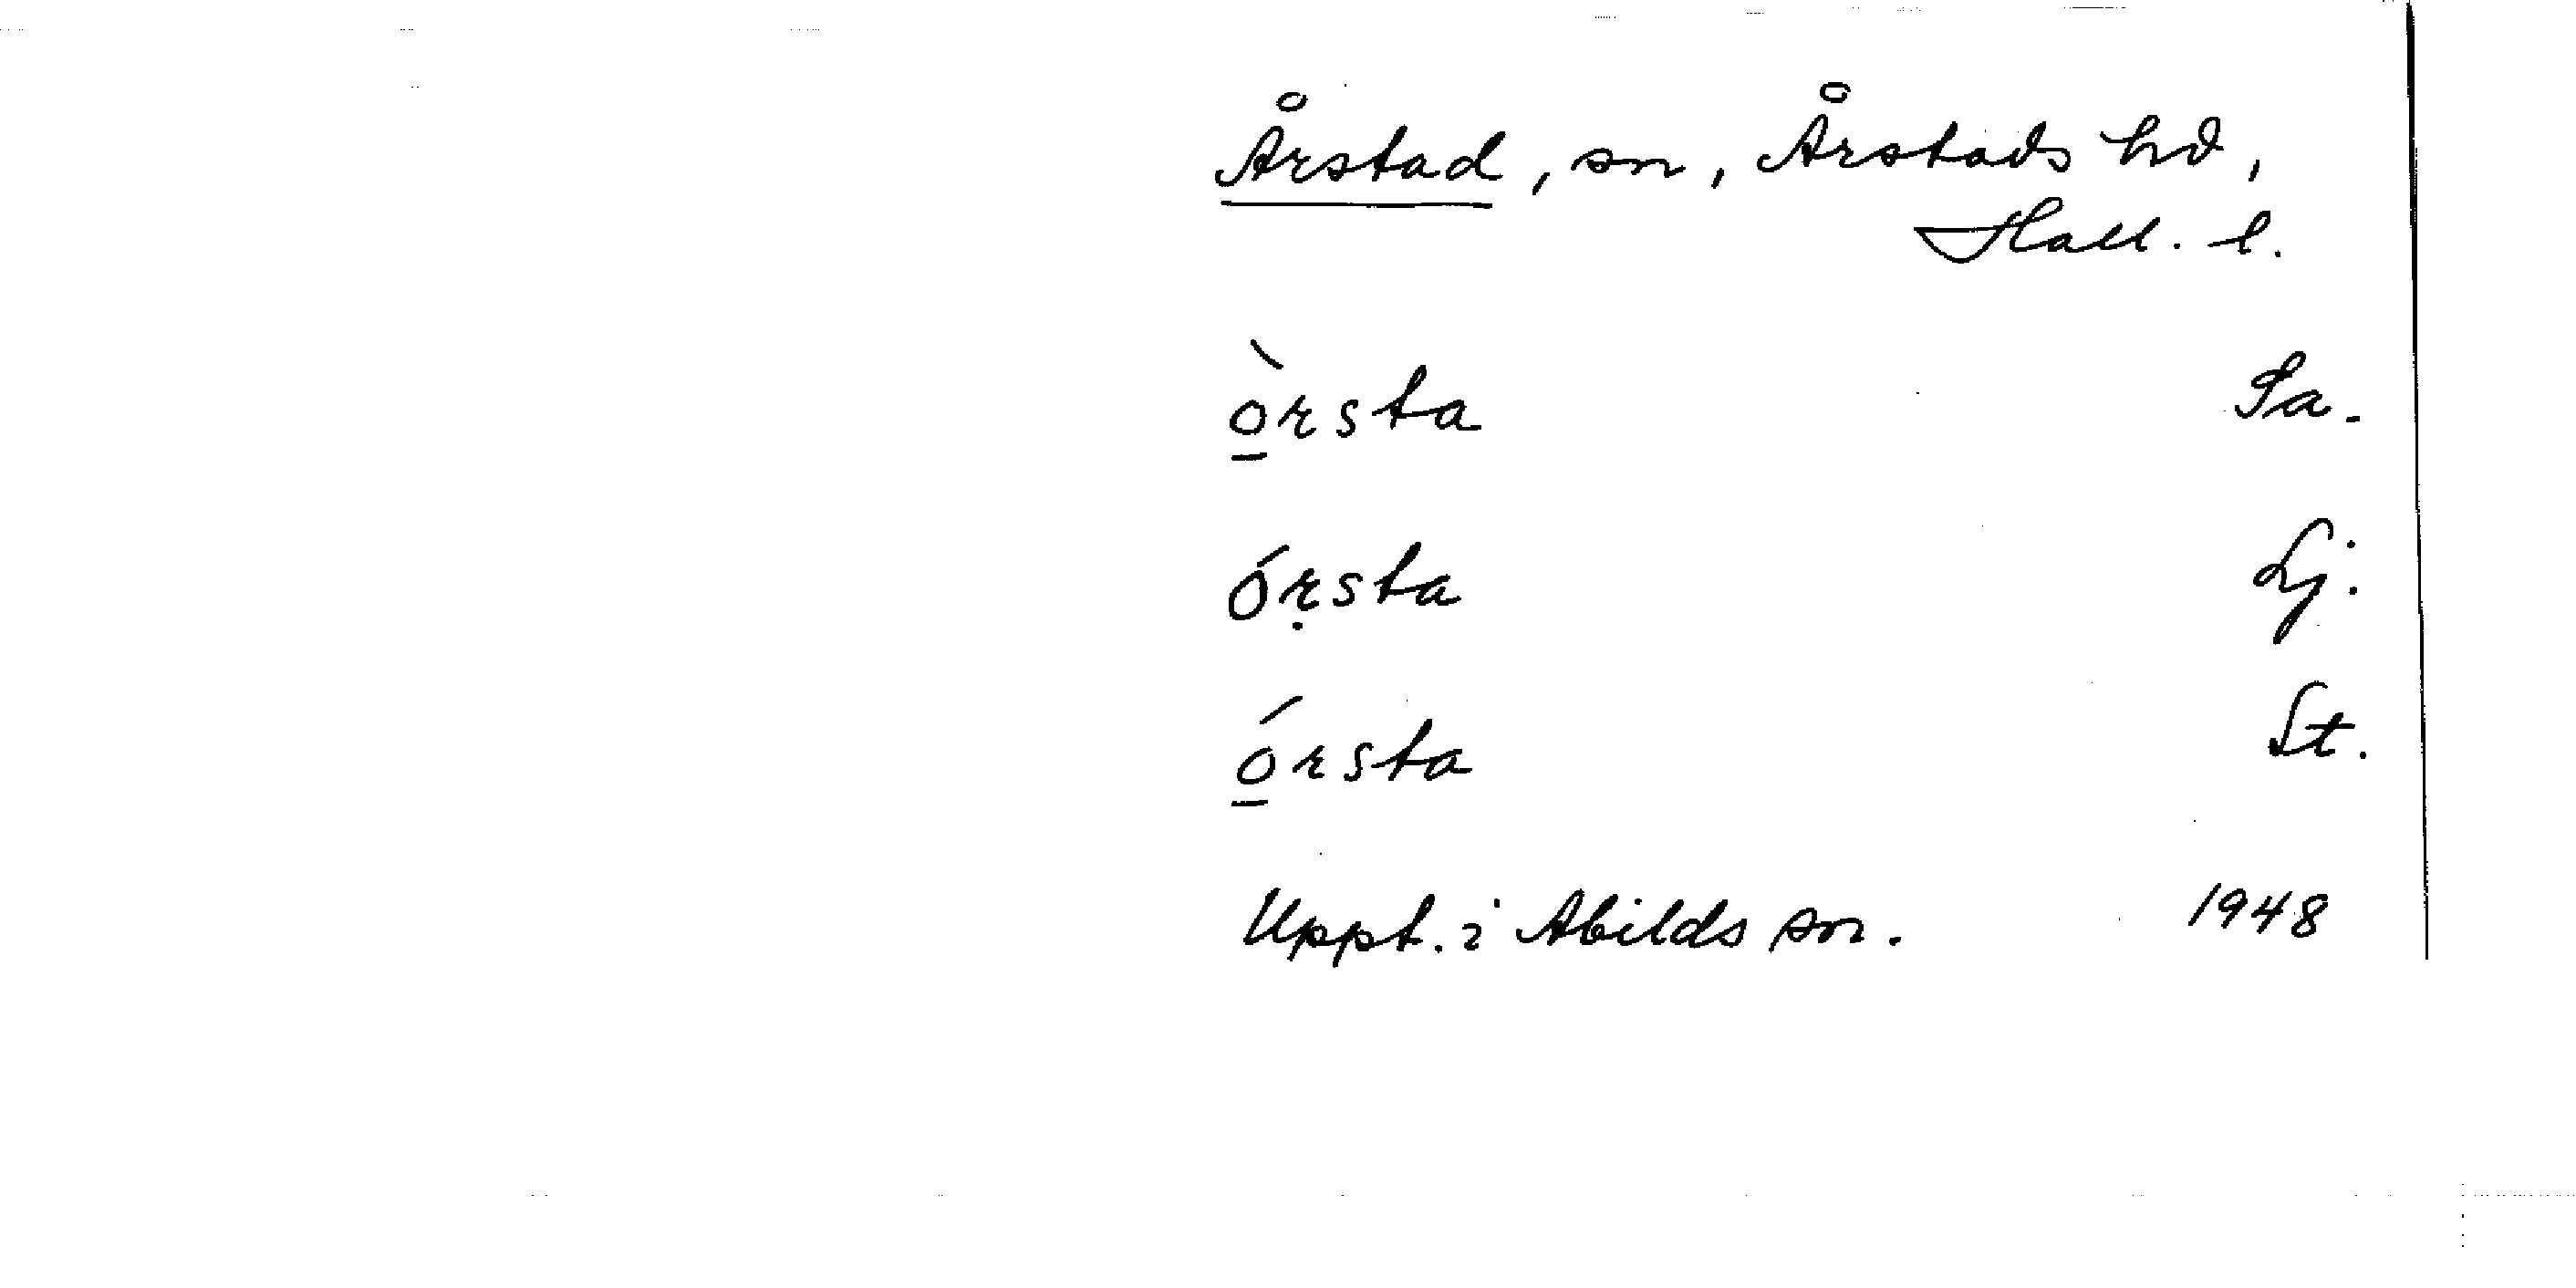 Årstad, sn, Årstads hd,
Hall. l.
ò̱rsta Sa.
óṛsta Lj.
ó̱rsta St.
Uppt. i Abilds sn. 1948